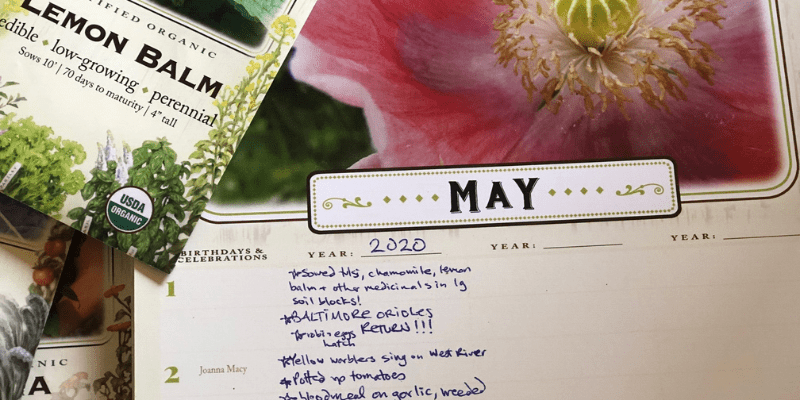 TIFIED ORGANIC
LEMON BALM
edible • low-growing • perennial
Sows 10' | 70 days to maturity | 4" tall
USDA
ORGANIC
NIC
A
MAY
BIRTHDAYS &
CELEBRATIONS
YEAR: 2020
YEAR:
YEAR:
1
*Sowed tulsi, chamomile, lemon
balm + other medicinals in lg
soil blocks!
*BALTIMORE ORIOLES
RETURN!!!
*robin eggs
hatch
2
Joanna Macy
*Yellow warblers sing on West River
*Potted up tomatoes
*bloodmeal on garlic, weeded